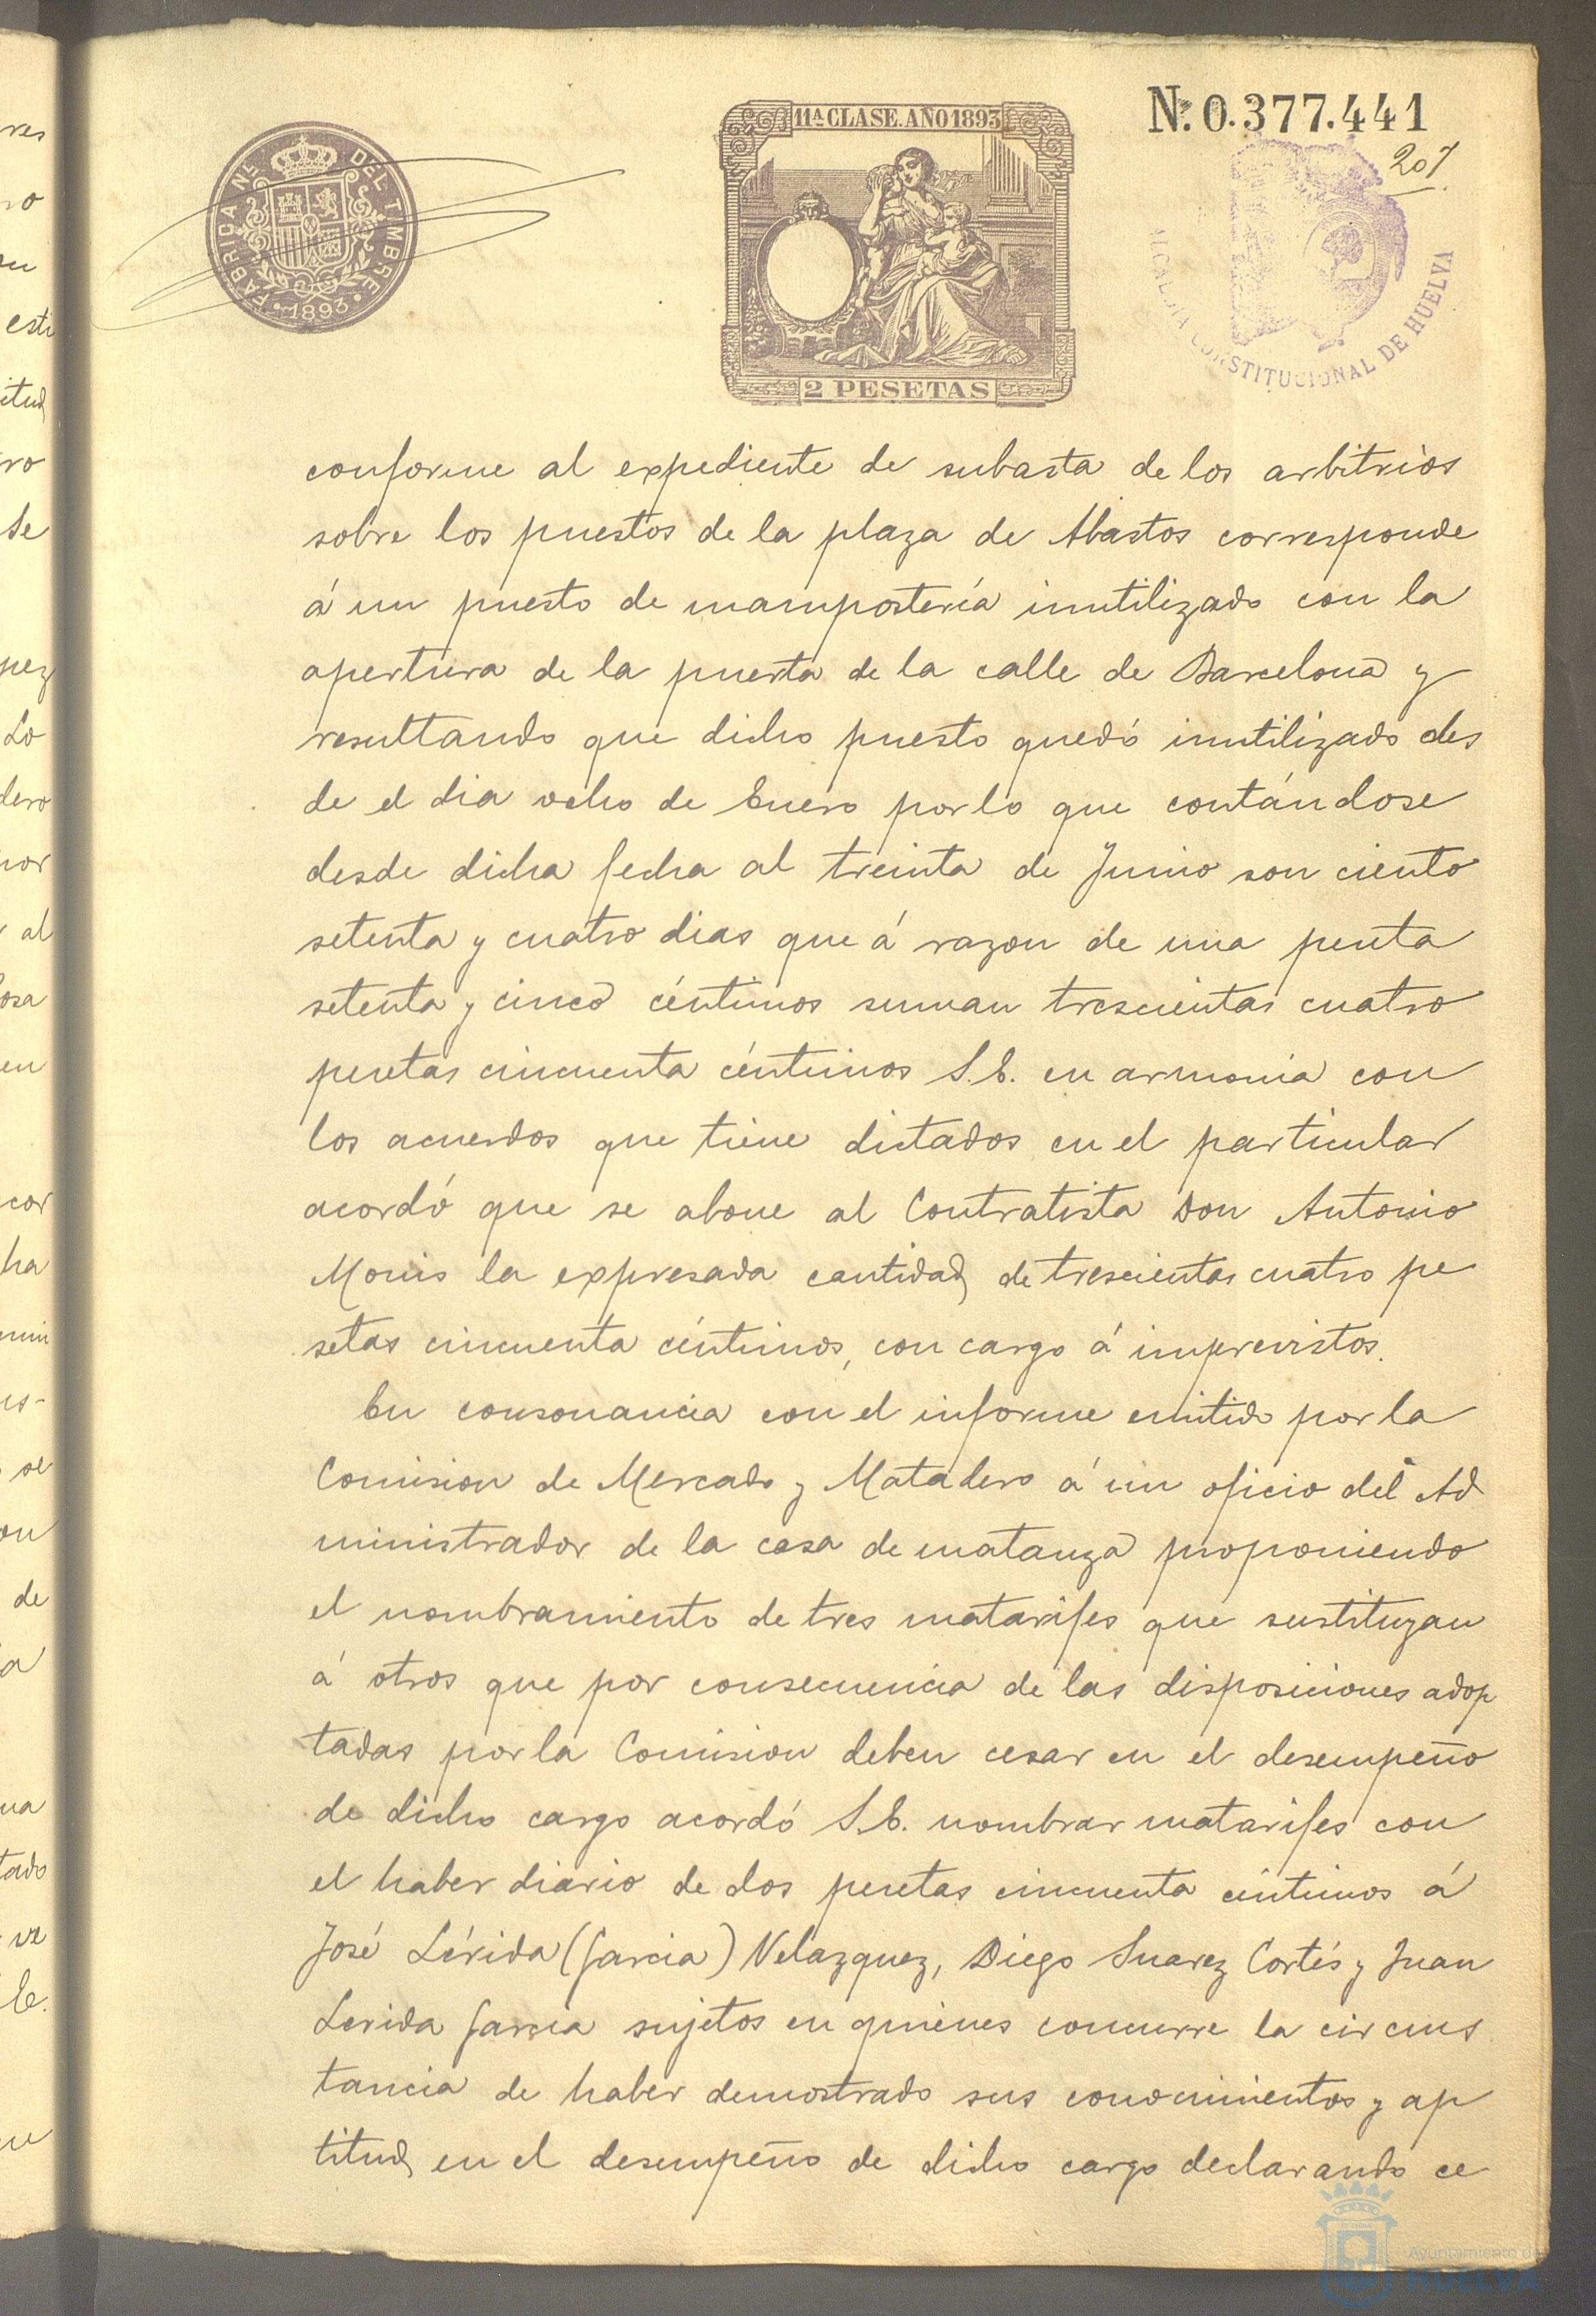 11ª CLASE. AÑO 1893
2 PESETAS
Nº 0.377.441
207
FABRICA Nˡ DEL TIMBRE
1893
ALCALDIA CONSTITUCIONAL DE HUELVA
conforme al expediente de subasta de los arbitrios
sobre los puestos de la plaza de Abastos corresponde
á un puesto de mampostería inutilizado con la
apertura de la puerta de la calle de Barcelona y
resultando que dicho puesto quedó inutilizado des
de el dia ocho de Enero por lo que contándose
desde dicha fecha al treinta de Junio son ciento
setenta y cuatro dias que á razon de una peseta
setenta y cinco céntimos suman trescientas cuatro
pesetas cincuenta céntimos S. E. en armonía con
los acuerdos que tiene dictados en el particular
acordó que se abone al Contratista Don Antonio
Monis la expresada cantidad de trescientas cuatro pe
setas cincuenta céntimos, con cargo á imprevistos.
En consonancia con el informe emitido por la
Comision de Mercado y Matadero á un oficio del Ad
ministrador de la casa de matanza proponiendo
el nombramiento de tres matarifes que sustituyan
á otros que por consecuencia de las disposiciones adop
tadas por la Comision deben cesar en el desempeño
de dicho cargo acordó S. E. nombrar matarifes con
el haber diario de dos pesetas cincuenta céntimos á
José Lérida (Garcia) Velazquez, Diego Suarez Cortés y Juan
Lerida Garcia sujetos en quienes concurre la circuns
tancia de haber demostrado sus conocimientos y ap
titud en el desempeño de dicho cargo declarando ce
Ayuntamiento de
HUELVA